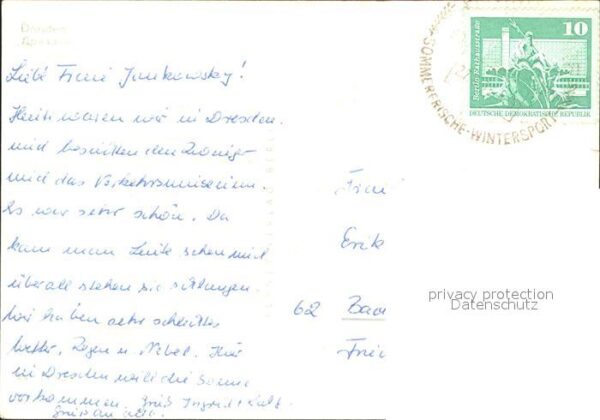 Dresden
Liebe Frau Jankowsky!
Heute waren wir in Dresden.
und besuchten den Zwinger
und das Verkehrsmuseum.
Es war sehr schön. Da
kann man Leute sehen und
überall stehen sie
Wir haben sehr schlechtes
Wetter, Regen u. Nebel. Hier
in Dresden will die Sonne
vorkommen. Gruß Ingrid + Ralf
Gruß an alle.
Berlin Rathausstraße
10
DEUTSCHE DEMOKRATISCHE REPUBLIK
SOMMERFRISCHE-WINTERSPORT
Frau
Erik
62 Bad
Frie
privacy protection
Datenschutz